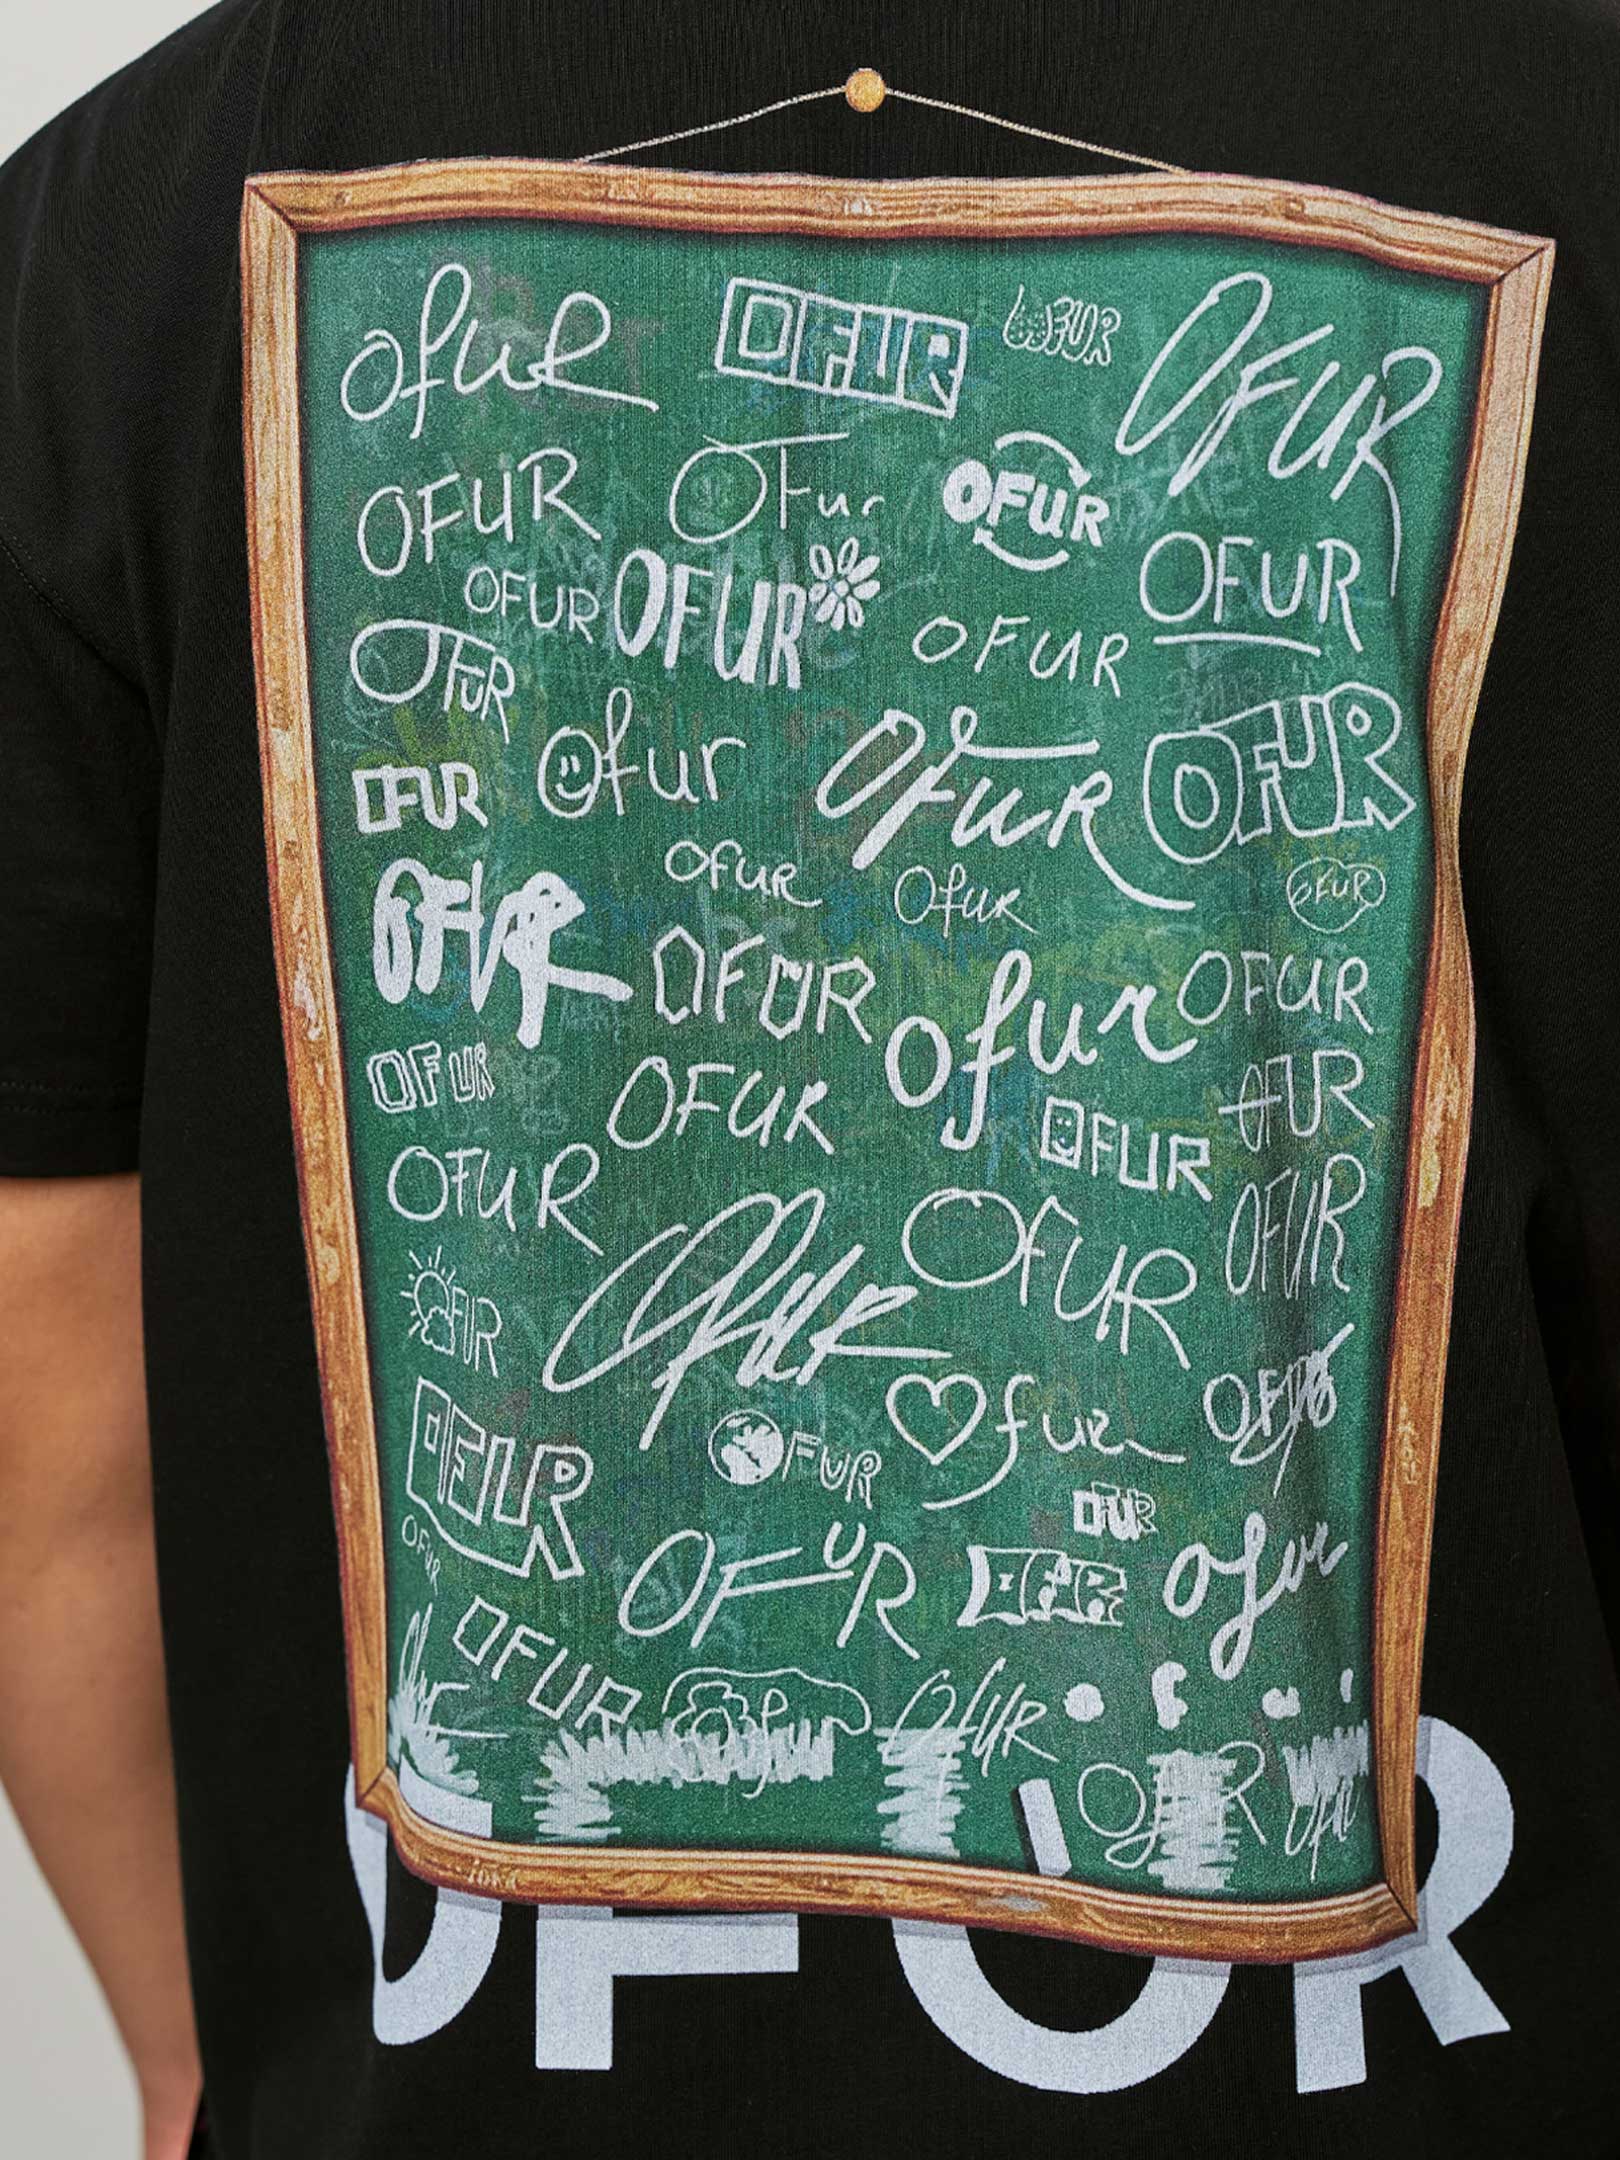 ofuR
OFUR
OFUR
OFUR
OFUR
OFur
OFUR
OFUR
OFUR
OFUR
OFUR
OFUR
ofur
OFUR
OFUR
OFUR
ofuR
OFUR
ofuR
OfuR
OFUR
OFUR
OFUR
ofur
OFUR
OFUR
OFUR
OFUR
OFUR
OFUR
OFUR
OFUR
FUR
OFUR
fur
OFUR
OFUR
OFUR
OFUR
OFUR
ofur
OFUR
OFUR
OFUR